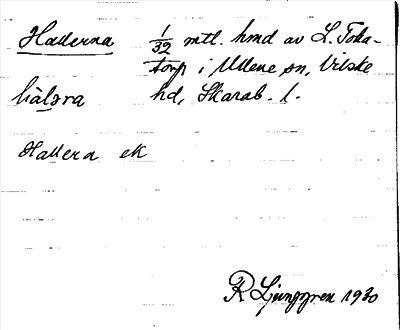 Hallerna 1/32 mtl. hmd av L. Toka-
torp i Ullene sn, Vilske
hd, Skarab. l.
Hallera ek
R Ljunggren 1930